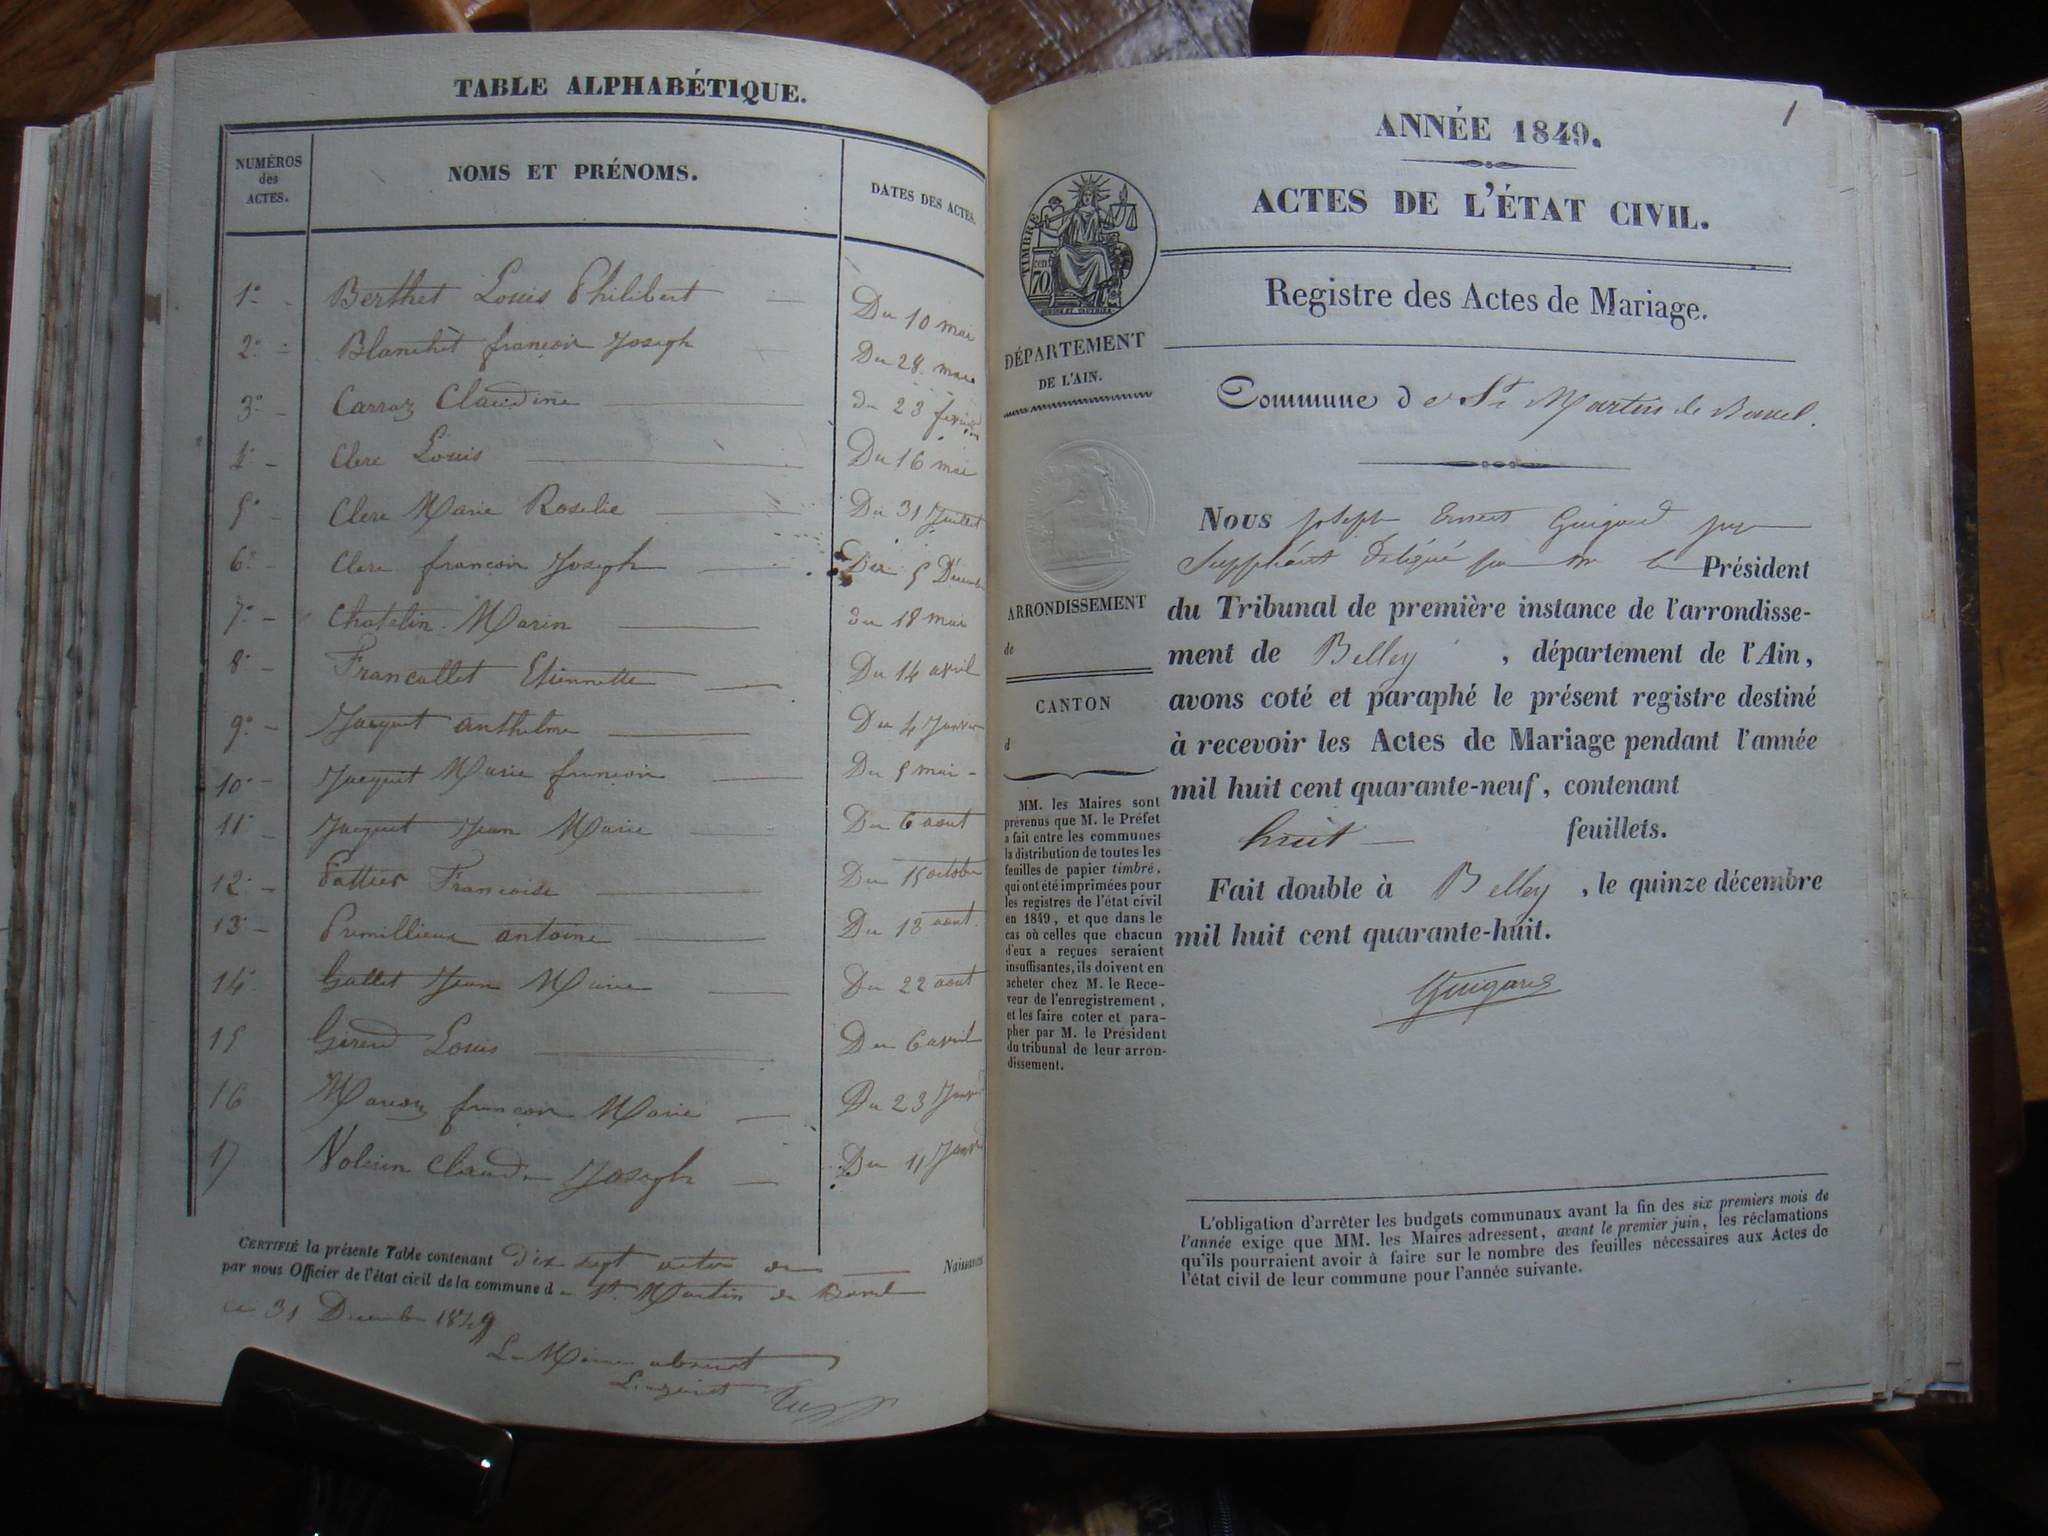 TABLE ALPHABÉTIQUE.
NUMÉROS des ACTES.
NOMS ET PRÉNOMS.
DATES DES ACTES.
1° Berthet Louis Philibert Du 10 mai
2° Blanchet françois Joseph Du 28 mars
3° Carraz Claudine du 23 février
4° Clerc Louis Du 16 mai
5° Clerc Marie Roselie Du 31 Juillet
6° Clerc françois Joseph Du 5 Décembre
7° Chatelin Marin du 18 mai
8° Francallet Etiennette Du 14 avril
9° Jacquet anthelme Du 4 Janvier
10° Jacquet Marie françois Du 5 mai
11° Jacquet Jean Marie Du 6 aout
12° Pattier Francoise Du 15 octobre
13° Premillieux antoine Du 18 aout
14° Gallet Jean Marie Du 22 aout
15 Girend Louis Du 6 avril
16 françois Marie Du 23
17 Claude Joseph Du 11
CERTIFIÉ la présente Table contenant Dix sept actes de Naissances
par nous Officier de l'état civil de la commune de St Martin de Bavel
ce 31 Decembre 1849
Le Maire absent
L'adjoint
1
ANNÉE 1849.
ACTES DE L'ÉTAT CIVIL.
Registre des Actes de Mariage.
TIMBRE
70 cent
DÉPARTEMENT
DE L'AIN.
ARRONDISSEMENT
de
CANTON
d
MM. les Maires sont
prévenus que M. le Préfet
a fait entre les communes
la distribution de toutes les
feuilles de papier timbré,
qui ont été imprimées pour
les registres de l'état civil
en 1849, et que dans le
cas où celles que chacun
d'eux a reçues seraient
insuffisantes, ils doivent en
acheter chez M. le Rece-
veur de l'enregistrement,
et les faire coter et para-
pher par M. le Président
du tribunal de leur arron-
dissement.
Commune de St Martin de Bavel.
Nous Joseph Ernest Guigard juge
Suppléant Délégué par Mr le Président
du Tribunal de première instance de l'arrondisse-
ment de Belley, département de l'Ain,
avons coté et paraphé le présent registre destiné
à recevoir les Actes de Mariage pendant l'année
mil huit cent quarante-neuf, contenant
huit feuillets.
Fait double à Belley, le quinze décembre
mil huit cent quarante-huit.
Guigard
L'obligation d'arrêter les budgets communaux avant la fin des six premiers mois de
l'année exige que MM. les Maires adressent, avant le premier juin, les réclamations
qu'ils pourraient avoir à faire sur le nombre des feuilles nécessaires aux Actes de
l'état civil de leur commune pour l'année suivante.